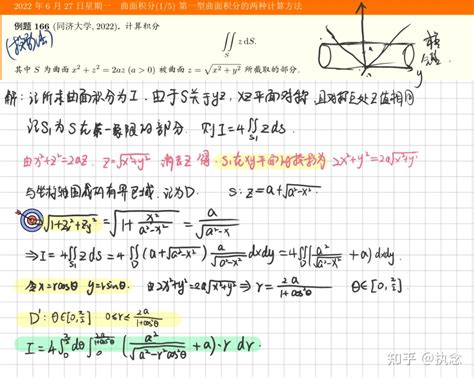 2022 年 6 月 27 日星期一 曲面积分(1/5) 第一型曲面积分的两种计算方法
例题 166 (同济大学, 2022). 计算积分
∬_S z dS.
其中 S 为曲面 x² + z² = 2az (a > 0) 被曲面 z = √(x² + y²) 所截取的部分.
(投影法)
y
解: 记所求曲面积分为 I. 由于 S 关于 yz, xz 平面对称, 且对称点处 z 值相同
记 S₁ 为 S 在第一卦限的部分. 则 I = 4∬_{S₁} z dS.
由 x²+z²=2az. z=√(x²+y²) 消去 z 得. S₁ 在 xy 平面的投影为 2x²+y²=2a√(x²+y²)
与坐标轴围成的有界区域, 记为 D. S: z=a+√(a²-x²).
√(1+z_x²+z_y²) = √(1+x²/(a²-x²)) = a/√(a²-x²)
⇒ I = 4∬_{S₁} z dS = 4∬ (a+√(a²-x²)) a/√(a²-x²) dxdy = 4∬ (a²/√(a²-x²) + a) dxdy.
令 x=rcosθ y=rsinθ. 由 2x²+y²=2a√(x²+y²) ⇒ r = 2a/(1+cos²θ) θ∈[0, π/2]
D': θ∈[0, π/2] 0≤r≤ 2a/(1+cos²θ)
I = 4∫_0^{π/2} dθ ∫_0^{2a/(1+cos²θ)} (a²/√(a²-r²cos²θ) + a)·r dr
知乎 @执念